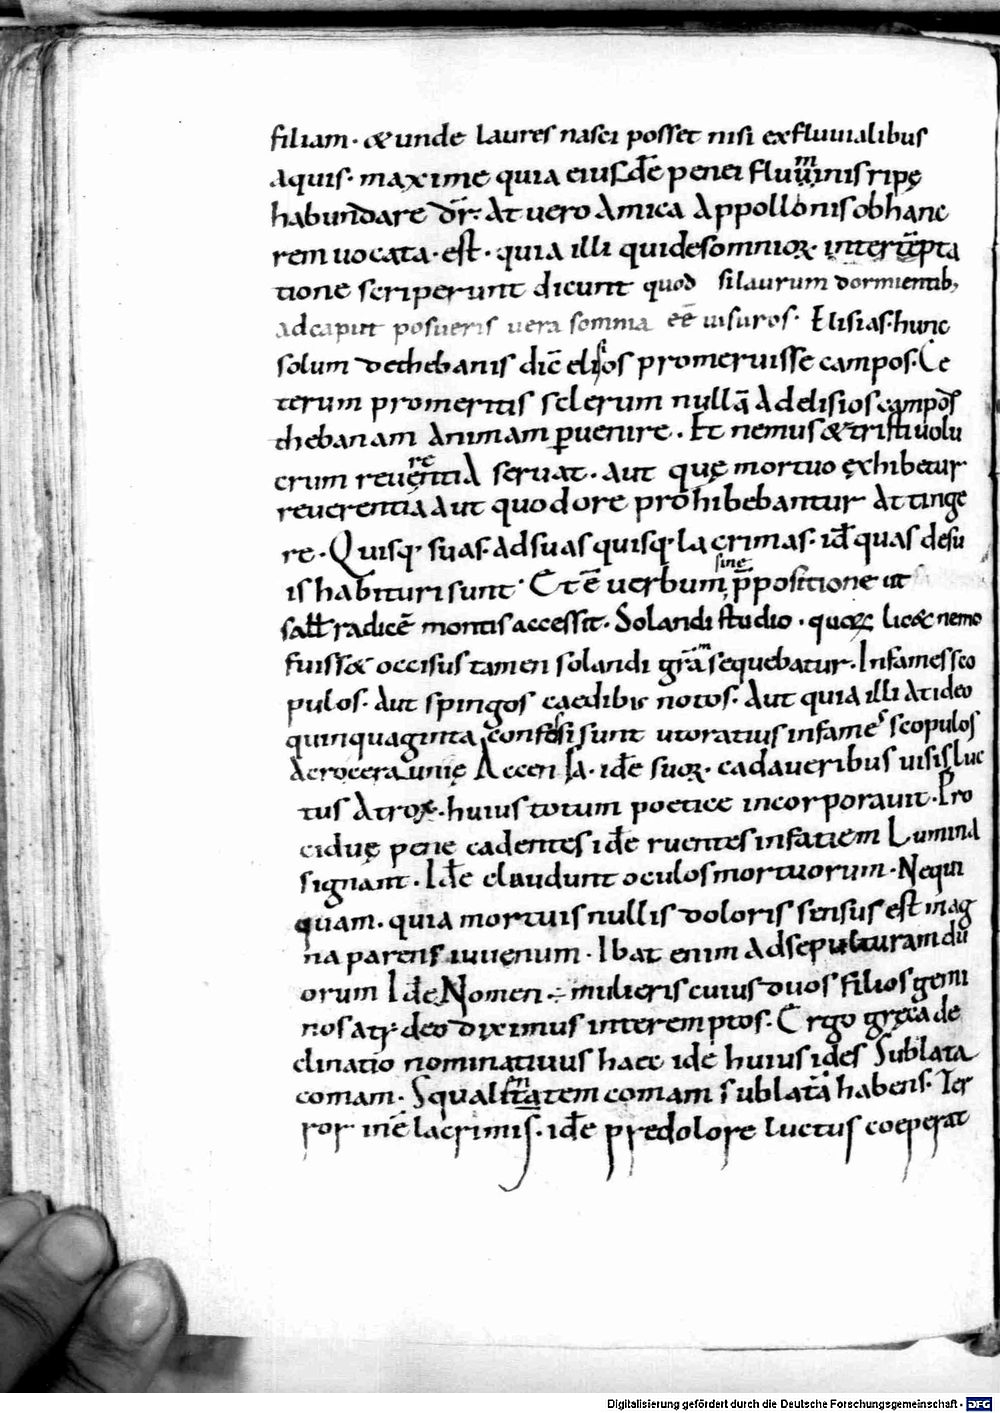 filiam · & unde laures nasci posset nisi exfluuialibus
aquis · maxime quia eiusdē penei fluminis ripę
habundare dr̄ · At uero Amica Appollonis obhanc
rem uocata · est · quia illi quidesomnioꝝ · interp̄ta
tione scriperunt dicunt quod silaurum dormientib;
adcaput posueris uera somnia eē uisuros · Elisias · hunc
solum dethebanis dic̄ elisios promeruisse campos · Ce
terum promeritis scelerum nullā Adelisios campos
thebanam Animam ꝑuenire · Et nemus & tristi uolu
crum reuerentia seruat · aut quę mortuo exhibetur
reuerentia Aut quodore prohibebantur Attinge
re · Quisq; suas · Adsuas quisq; lacrimas · idē quas desu
is habituri sunt · Et ē uerbum sine p̄positione ut
sall̄ radicē montis accessit · Solandi studio · quoꝝ lic& nemo
fuiss& occisus tamen solandi grām sequebatur · Infames sco
pulos · Aut spingos caedibus notos · Aut quia illi Atideo
quinquaginta confossi sunt utoratius infames scopulos
Acroceraunię Accensa · idē suoꝝ · cadaueribus uisis luc
tus Atrox · huius totum poetice incorporauit · Pro
ciduę pene cadentes idē ruentes infatiem Lumina
signant · Idē claudunt oculos mortuorum · Nequi
quam · quia mortuis nullis doloris sensus est mag
na parens iuuenum · Ibat enim Adsepulturam du
orum Idē Nomen ÷ mulieris cuius duos filios gemi
nos atq; deo diximus interemptos · Ergo gręca de
clinatio nominatiuus haec ide huius ides Sublata
comam · Squalentem comam sublatā habens · Ter
ror inē lacrimis · idē predolore luctus coeperat
Digitalisierung gefördert durch die Deutsche Forschungsgemeinschaft · DFG